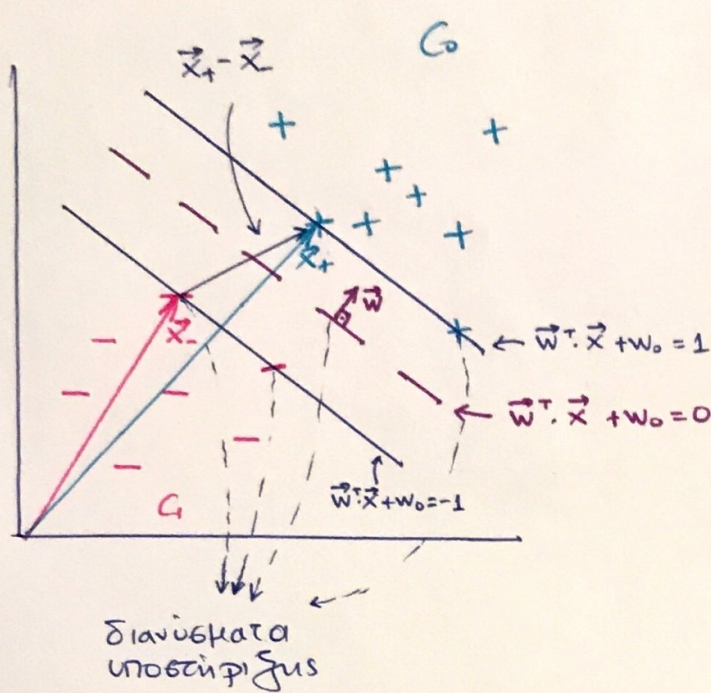 C₀
x⃗₊ - x⃗₋
x⃗₊
w⃗
x⃗₋
w⃗ᵀ· x⃗ + w₀ = 1
w⃗ᵀ· x⃗ + w₀ = 0
w⃗ᵀ· x⃗ + w₀ = -1
C₁
διανύσματα
υποστήριξης